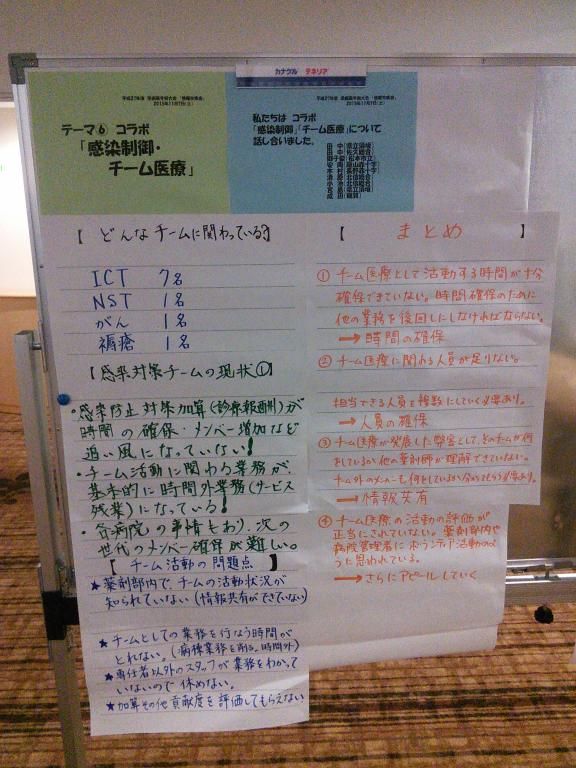 カナグル テネリア
平成27年度
2015年11月7日(土)
テーマ⑥ コラボ
「感染制御・
チーム医療」
平成27年度
2015年11月7日(土)
私たちは コラボ
「感染制御」「チーム医療」について
話し合いました。
【 どんなチームに関わっている? 】
ICT 7名
NST 1名
がん 1名
褥瘡 1名
【感染対策チームの現状①】
・感染防止対策加算(診療報酬)が
時間の確保・メンバー増加など
追い風になっていない!
・チーム活動に関わる業務が、
基本的に時間外業務(サービス
残業)になっている!
・各病院の事情もあり、次の
世代のメンバー確保が難しい。
【 チーム活動の問題点 】
★薬剤部内で、チームの活動状況が
知られていない(情報共有ができていない)
★チームとしての業務を行なう時間が
とれない。(病棟業務を削る。時間外)
★専任者以外のスタッフが業務をわかって
いないので休めない。
★加算その他貢献度を評価してもらえない
【 まとめ 】
① チーム医療として活動する時間が十分
確保できていない。時間確保のために
他の業務を後回しにしなければならない。
→時間の確保
② チーム医療に関わる人員が足りない。
担当できる人員を複数にしていく必要あり。
→人員の確保
③ チーム医療が発展した弊害として、そのチームが何
をしているか他の薬剤師が理解できていない。
チーム外のメンバーも何をしているか分かってもらう必要あり。
→情報共有
④ チーム医療の活動の評価が
正当にされていない。薬剤部内や
病院管理者にボランティア活動のよ
うに思われている。
→さらにアピールしていく